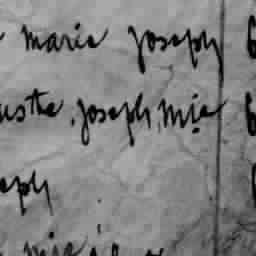 Marie Joseph 6
usthe, Joseph, Mie 6
eph